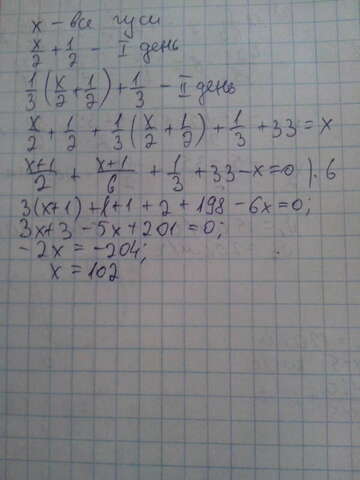 x – все гуси
x/2 + 1/2 – I день
1/3 (x/2 + 1/2) + 1/3 – II день
x/2 + 1/2 + 1/3 (x/2 + 1/2) + 1/3 + 33 = x
(x+1)/2 + (x+1)/6 + 1/3 + 33 – x = 0 ) · 6
3(x+1) + x+1 + 2 + 198 – 6x = 0;
3x+3 – 5x + 201 = 0;
–2x = –204;
x = 102